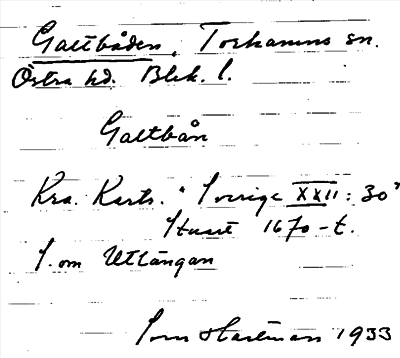 Galtbåden, Torhamns sn.
Östra hd. Blek. l.
Galtbån
Kra. Kartv. "Sverige XXII: 30"
Stuart 1670-t.
S. om Utlängan
Hartman 1933